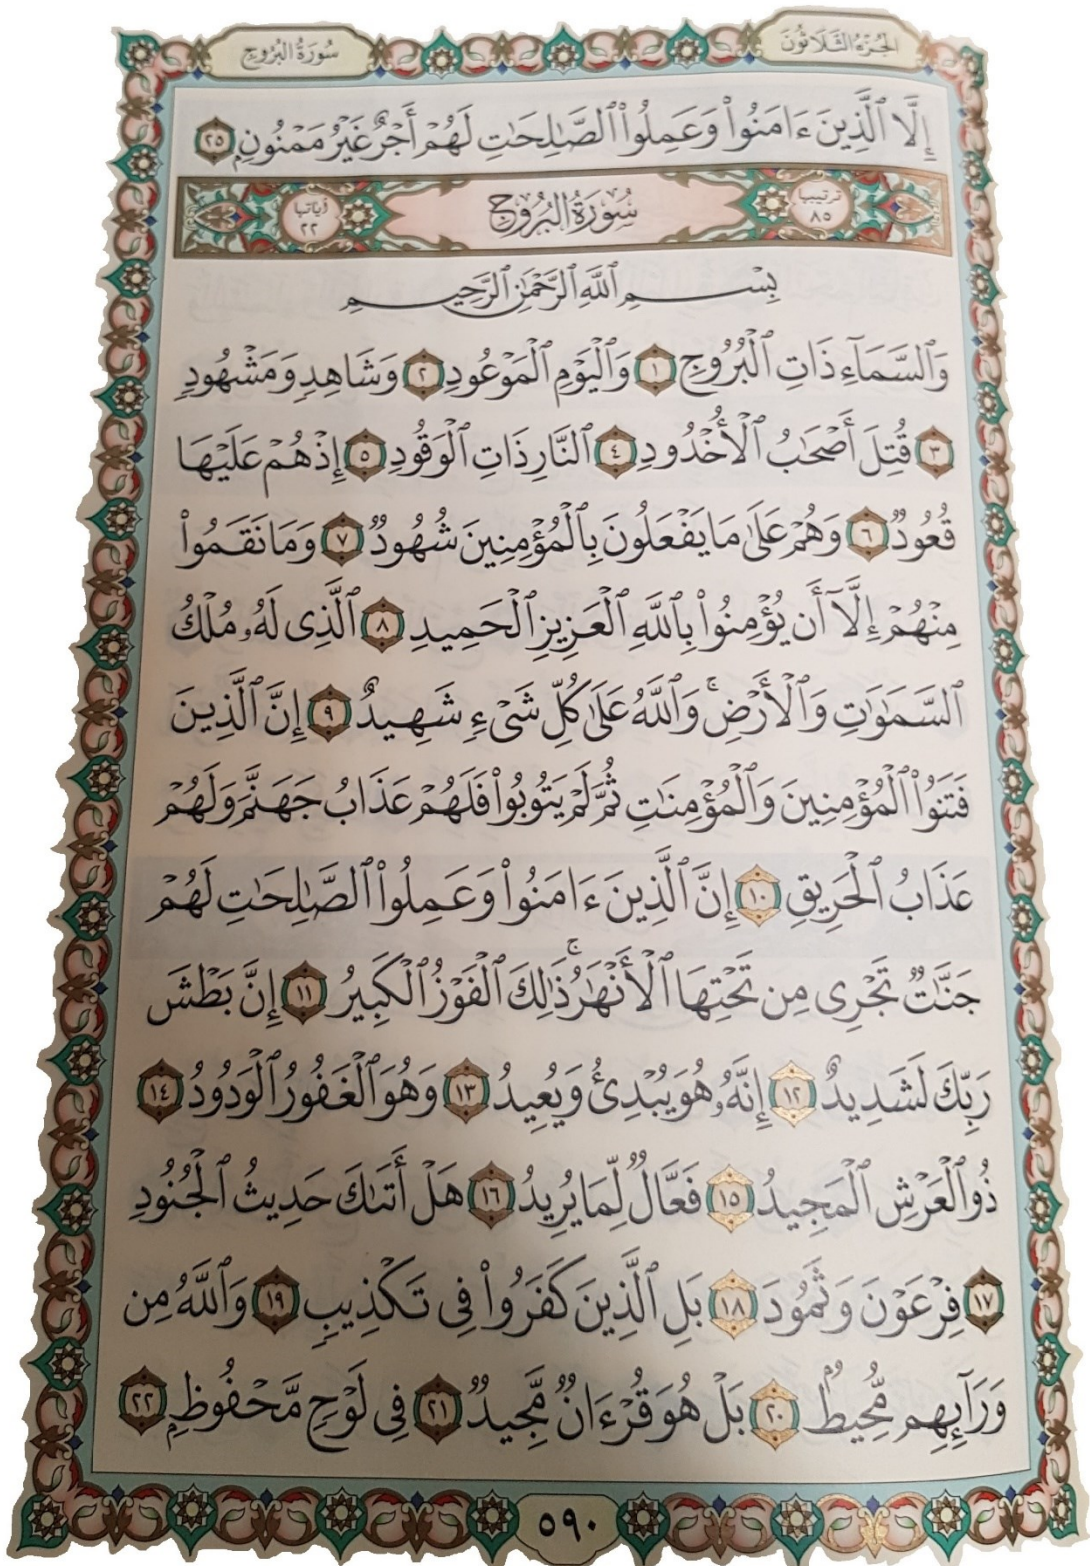 الجُزْءُ الثَّلَاثُونَ
سُورَةُ البُرُوجِ
إِلَّا ٱلَّذِينَ ءَامَنُوا۟ وَعَمِلُوا۟ ٱلصَّـٰلِحَـٰتِ لَهُمْ أَجْرٌ غَيْرُ مَمْنُونٍۭ ٢٥
ترتيبها ٨٥ سُورَةُ البُرُوجِ آياتها ٢٢
بِسْمِ ٱللَّهِ ٱلرَّحْمَـٰنِ ٱلرَّحِيمِ
وَٱلسَّمَآءِ ذَاتِ ٱلْبُرُوجِ ١ وَٱلْيَوْمِ ٱلْمَوْعُودِ ٢ وَشَاهِدٍ وَمَشْهُودٍ
٣ قُتِلَ أَصْحَـٰبُ ٱلْأُخْدُودِ ٤ ٱلنَّارِ ذَاتِ ٱلْوَقُودِ ٥ إِذْ هُمْ عَلَيْهَا
قُعُودٌ ٦ وَهُمْ عَلَىٰ مَا يَفْعَلُونَ بِٱلْمُؤْمِنِينَ شُهُودٌ ٧ وَمَا نَقَمُوا۟
مِنْهُمْ إِلَّآ أَن يُؤْمِنُوا۟ بِٱللَّهِ ٱلْعَزِيزِ ٱلْحَمِيدِ ٨ ٱلَّذِى لَهُۥ مُلْكُ
ٱلسَّمَـٰوَٰتِ وَٱلْأَرْضِ ۚ وَٱللَّهُ عَلَىٰ كُلِّ شَىْءٍ شَهِيدٌ ٩ إِنَّ ٱلَّذِينَ
فَتَنُوا۟ ٱلْمُؤْمِنِينَ وَٱلْمُؤْمِنَـٰتِ ثُمَّ لَمْ يَتُوبُوا۟ فَلَهُمْ عَذَابُ جَهَنَّمَ وَلَهُمْ
عَذَابُ ٱلْحَرِيقِ ١٠ إِنَّ ٱلَّذِينَ ءَامَنُوا۟ وَعَمِلُوا۟ ٱلصَّـٰلِحَـٰتِ لَهُمْ
جَنَّـٰتٌ تَجْرِى مِن تَحْتِهَا ٱلْأَنْهَـٰرُ ۚ ذَٰلِكَ ٱلْفَوْزُ ٱلْكَبِيرُ ١١ إِنَّ بَطْشَ
رَبِّكَ لَشَدِيدٌ ١٢ إِنَّهُۥ هُوَ يُبْدِئُ وَيُعِيدُ ١٣ وَهُوَ ٱلْغَفُورُ ٱلْوَدُودُ ١٤
ذُو ٱلْعَرْشِ ٱلْمَجِيدُ ١٥ فَعَّالٌ لِّمَا يُرِيدُ ١٦ هَلْ أَتَىٰكَ حَدِيثُ ٱلْجُنُودِ
١٧ فِرْعَوْنَ وَثَمُودَ ١٨ بَلِ ٱلَّذِينَ كَفَرُوا۟ فِى تَكْذِيبٍ ١٩ وَٱللَّهُ مِن
وَرَآئِهِم مُّحِيطٌۢ ٢٠ بَلْ هُوَ قُرْءَانٌ مَّجِيدٌ ٢١ فِى لَوْحٍ مَّحْفُوظٍۭ ٢٢
٥٩٠